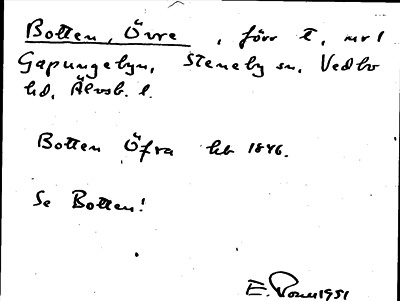 Botten, Övre, förr t. nr 1
Gapungebyn, Steneby sn, Vedbo
hd, Älvsb. l.
Botten Öfra hb 1846.
Se Botten!
E. 1951